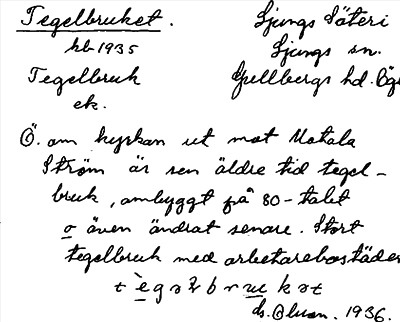 Tegelbruket. Ljungs Säteri
hb 1935 Ljungs sn.
Tegelbruk Gullbergs hd. Ög
ek.
Ö. om kyrkan ut mot Motala
Ström är sen äldre tid tegel-
bruk, ombyggt på 80-talet
o även ändrat senare. Stort
tegelbruk med arbetarebostäder
1936.